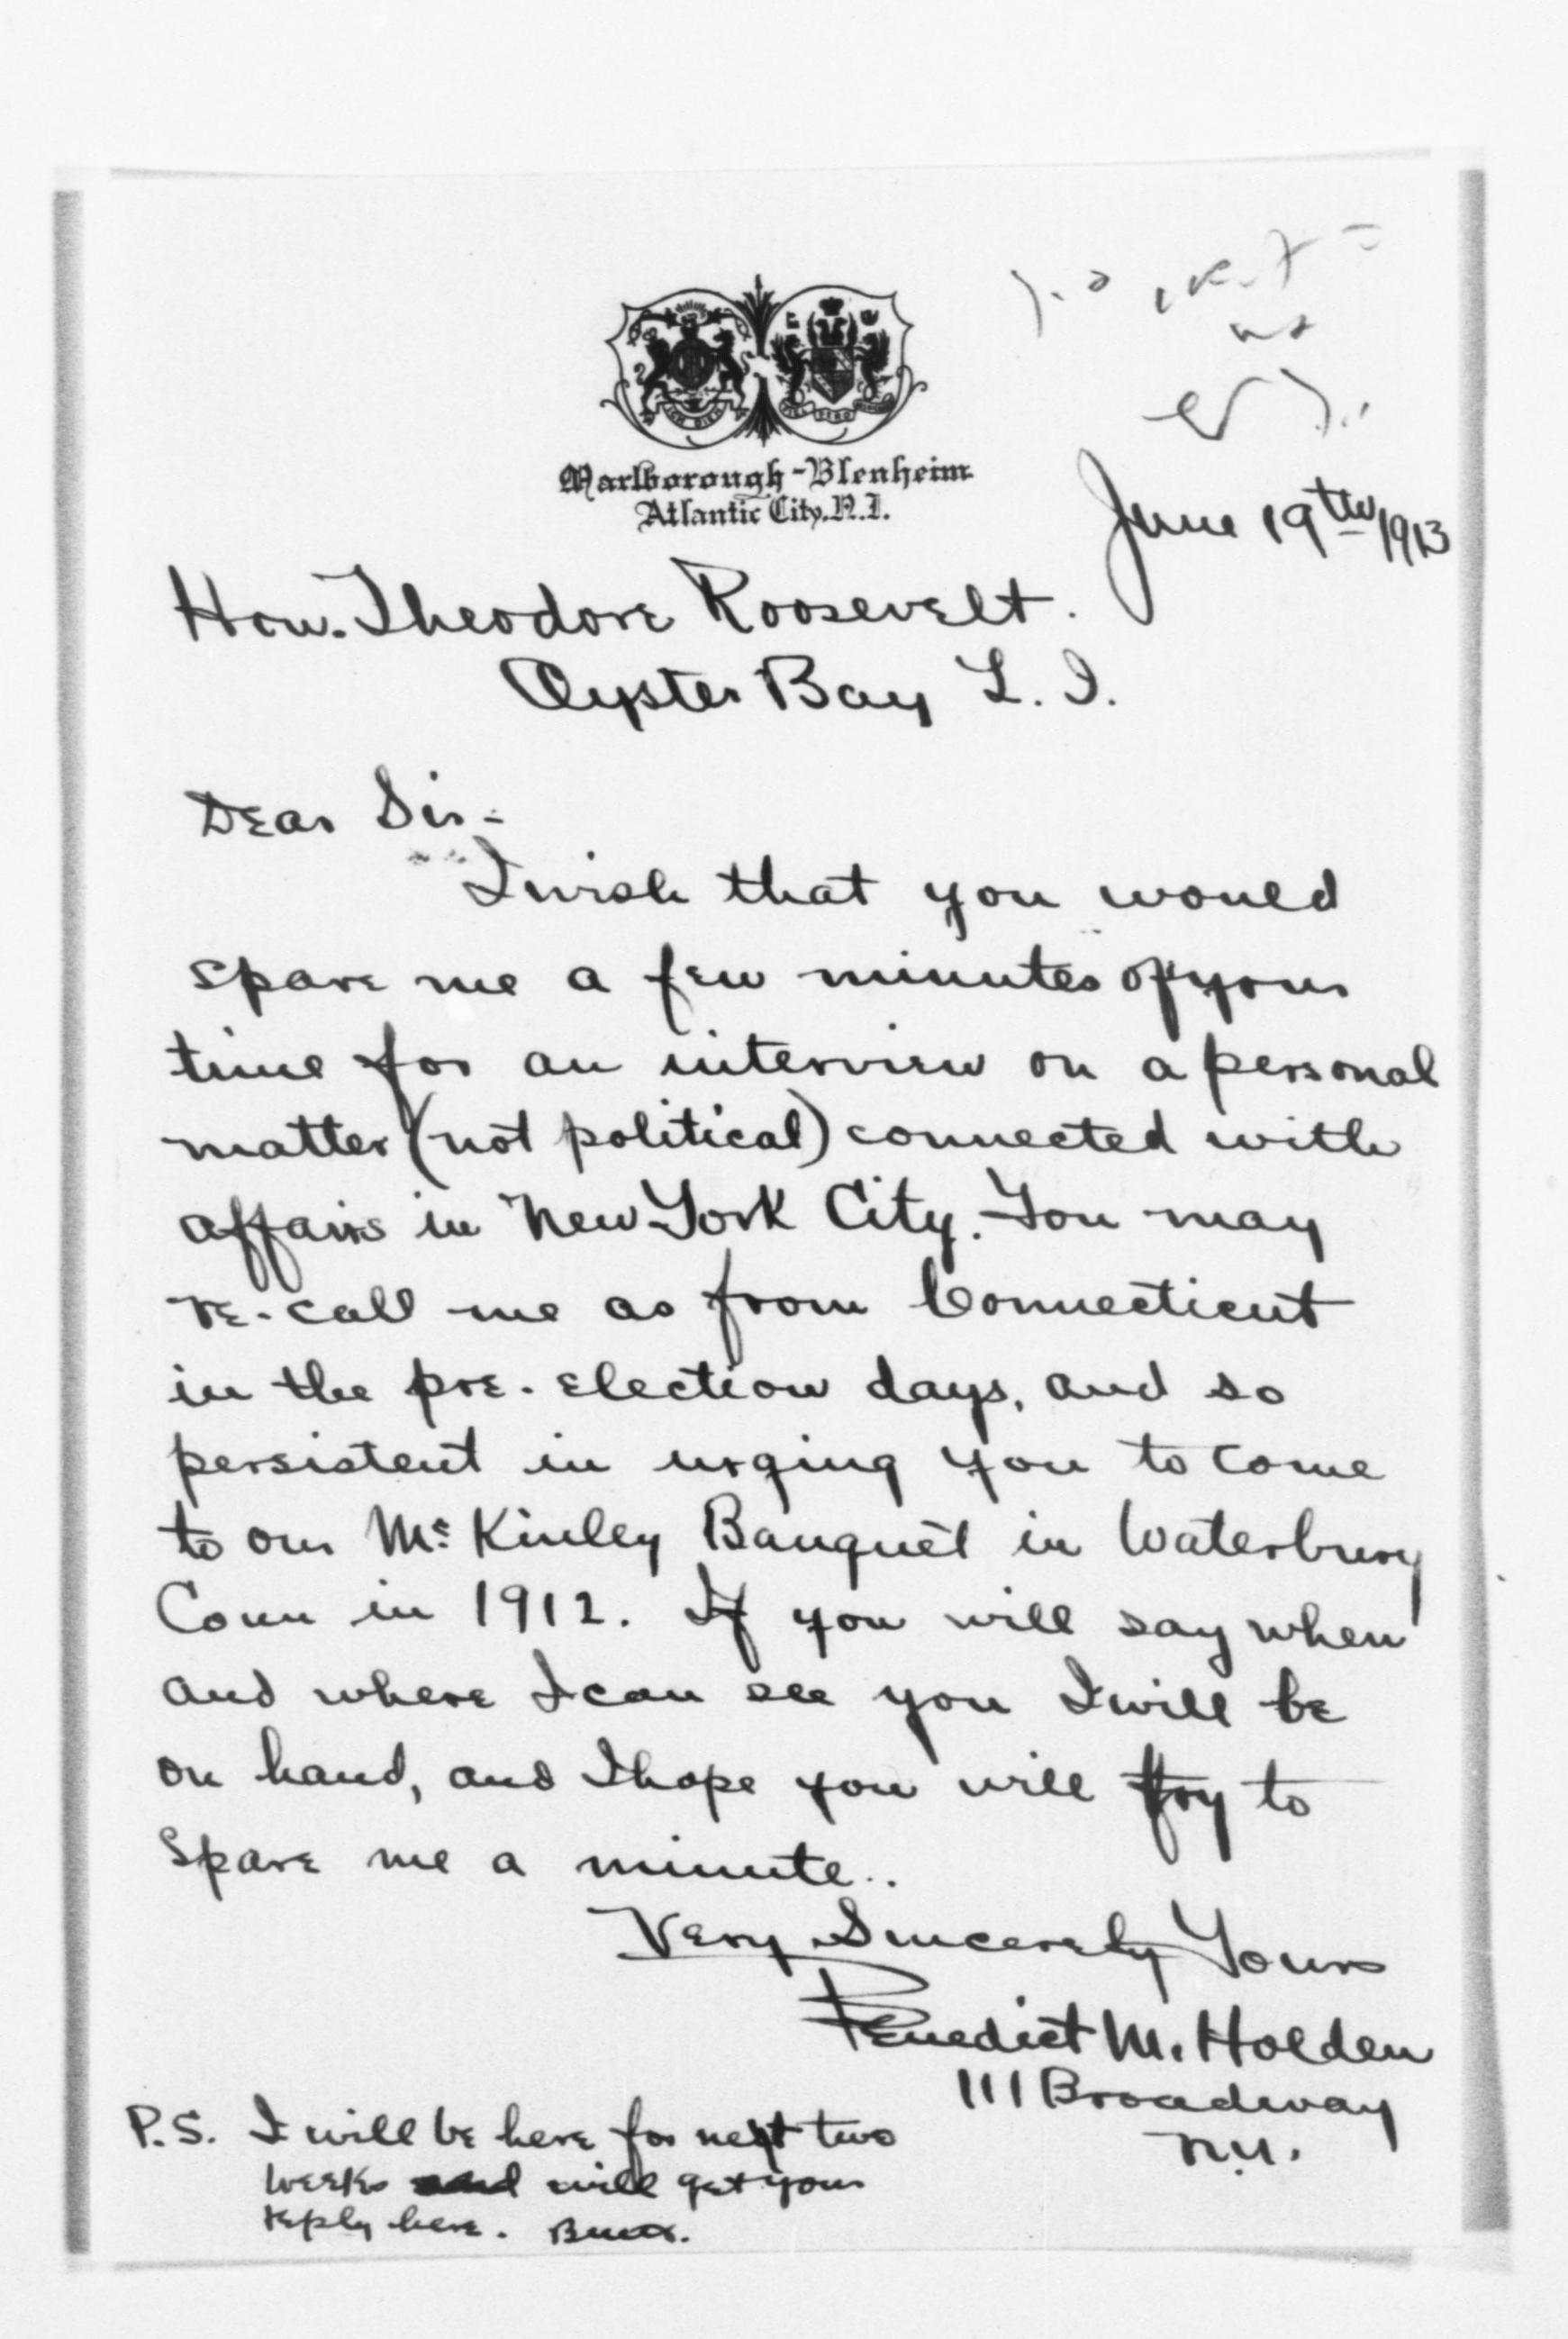 Marlborough-Blenheim
Atlantic City, N.J.
June 19th 1913
Hon. Theodore Roosevelt.
Oyster Bay L. I.
Dear Sir-
I wish that you would
spare me a few minutes of your
time for an interview on a personal
matter (not political) connected with
affairs in New York City. You may
re-call me as from Connecticut
in the pre-election days, and so
persistent in urging you to come
to our Mc Kinley Banquet in Waterbury
Conn in 1912. If you will say when
and where I can see you I will be
on hand, and I hope you will try to
spare me a minute..
Very Sincerely Yours
Benedict M. Holden
111 Broadway
N.Y.
P.S. I will be here for next two
weeks and will get your
reply here. BMH.